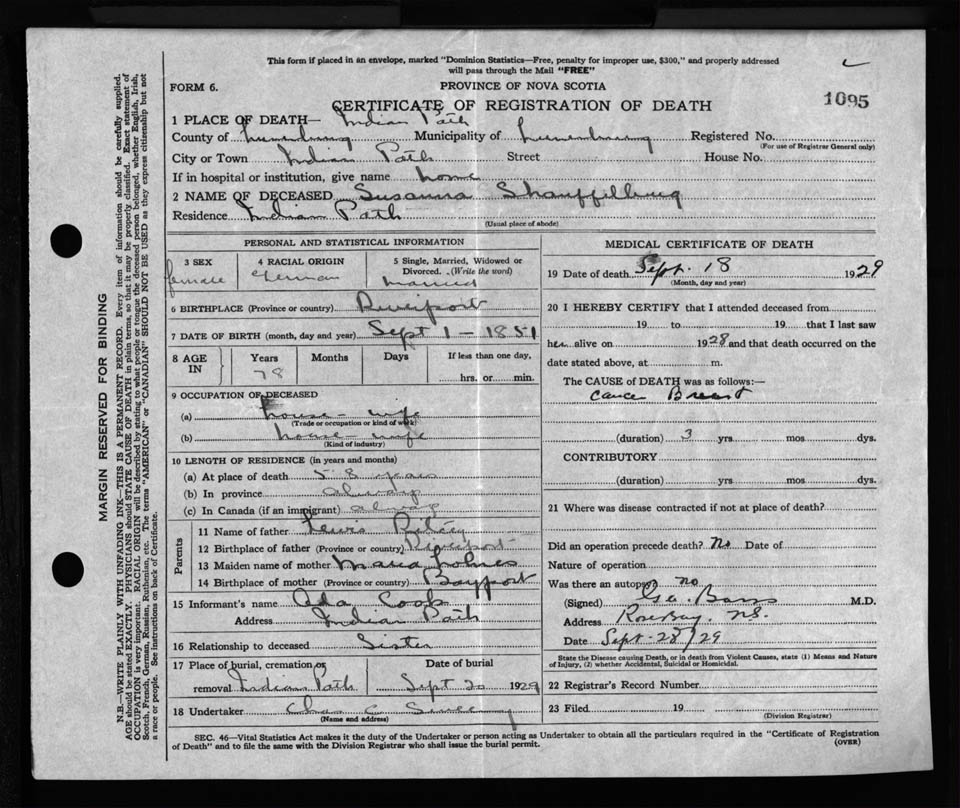 This form if placed in an envelope, marked "Dominion Statistics—Free, penalty for improper use, $300," and properly addressed
will pass through the Mail "FREE"
FORM 6.
PROVINCE OF NOVA SCOTIA
CERTIFICATE OF REGISTRATION OF DEATH
1095
1 PLACE OF DEATH— Indian Path
County of Lunenburg Municipality of Lunenburg Registered No.
(For use of Registrar General only)
City or Town Indian Path Street House No.
If in hospital or institution, give name home
2 NAME OF DECEASED Susanna
Residence Indian Path
(Usual place of abode)
PERSONAL AND STATISTICAL INFORMATION
3 SEX female
4 RACIAL ORIGIN German
5 Single, Married, Widowed or
Divorced. (Write the word)
married
6 BIRTHPLACE (Province or country)
7 DATE OF BIRTH (month, day and year) Sept 1 – 1851
8 AGE IN Years Months Days If less than one day,
78 hrs. or min.
9 OCCUPATION OF DECEASED
(a) house-wife
(Trade or occupation or kind of work)
(b) house-wife
(Kind of industry)
10 LENGTH OF RESIDENCE (in years and months)
(a) At place of death 58 years
(b) In province always
(c) In Canada (if an immigrant) always
Parents
11 Name of father Lewis
12 Birthplace of father (Province or country)
13 Maiden name of mother Maria
14 Birthplace of mother (Province or country) Bayport
15 Informant's name Ada Cook
Address Indian Path
16 Relationship to deceased Sister
17 Place of burial, cremation or
removal Indian Path
Date of burial
Sept 20 1929
18 Undertaker Chas C
(Name and address)
MEDICAL CERTIFICATE OF DEATH
19 Date of death Sept. 18 1929
(Month, day and year)
20 I HEREBY CERTIFY that I attended deceased from
19 to 19 that I last saw
her alive on 1928 and that death occurred on the
date stated above, at m.
The CAUSE of DEATH was as follows:—
Cancer Breast
(duration) 3 yrs. mos. dys.
CONTRIBUTORY
(duration) yrs. mos. dys.
21 Where was disease contracted if not at place of death?
Did an operation precede death? No Date of
Nature of operation
Was there an autopsy? no
(Signed) Geo. M.D.
Address Rose Bay. N.S.
Date Sept-28/29
State the Disease causing Death, or in death from Violent Causes, state (1) Means and Nature
of Injury, (2) whether Accidental, Suicidal or Homicidal.
22 Registrar's Record Number
23 Filed 19
(Division Registrar)
SEC. 46—Vital Statistics Act makes it the duty of the Undertaker or person acting as Undertaker to obtain all the particulars required in the "Certificate of Registration
of Death" and to file the same with the Division Registrar who shall issue the burial permit.
(OVER)
MARGIN RESERVED FOR BINDING
N.B.—WRITE PLAINLY WITH UNFADING INK—THIS IS A PERMANENT RECORD. Every item of information should be carefully supplied.
AGE should be stated EXACTLY. PHYSICIANS should STATE CAUSE OF DEATH in plain terms, so that it may be properly classified. Exact statement of
OCCUPATION is very important. RACIAL ORIGIN will be described by stating to what people or tongue the deceased person belonged, whether English, Irish,
Scotch, French, German, Russian, Ruthenian, etc. The terms "AMERICAN" or "CANADIAN" SHOULD NOT BE USED as they express citizenship but not
a race or people. See instructions on back of Certificate.